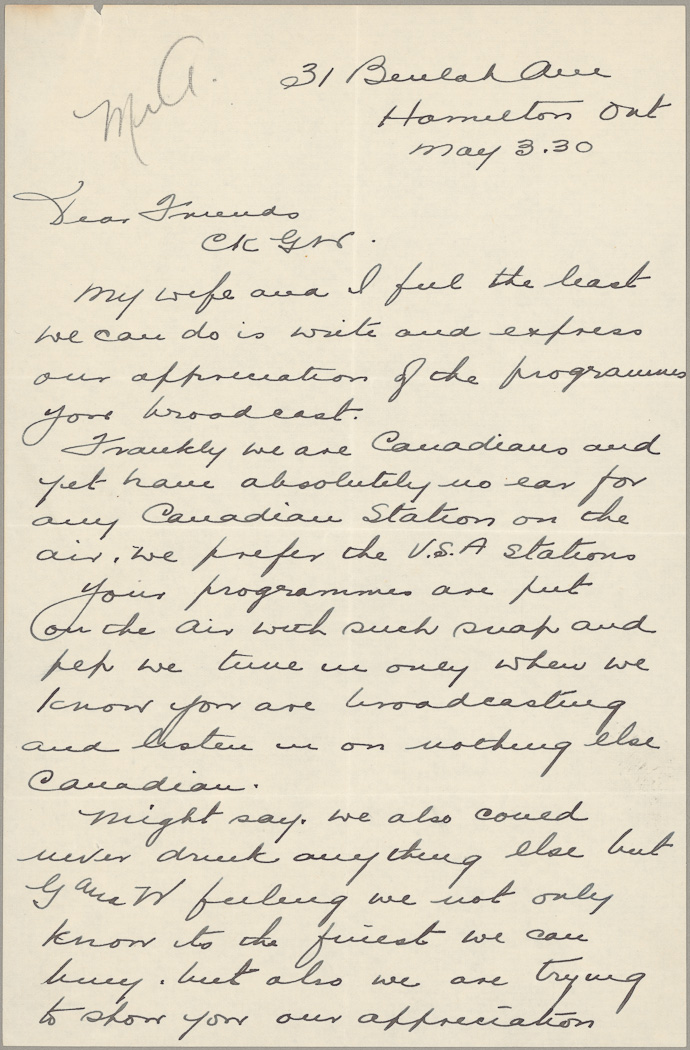 31 Beulah Ave
Hamilton Ont
May 3.30
Dear Friends
CK GW.
My wife and I feel the least
we can do is write and express
our appreciation of the programmes
you broadcast.
Frankly we are Canadians and
yet have absolutely no ear for
any Canadian Station on the
air. we prefer the U.S.A stations
Your programmes are put
on the air with such snap and
pep we tune in only when we
know you are broadcasting
and listen in on nothing else
Canadian.
Might say. we also could
never drink anything else but
G and W feeling we not only
know its the finest we can
buy. but also we are trying
to show you our appreciation